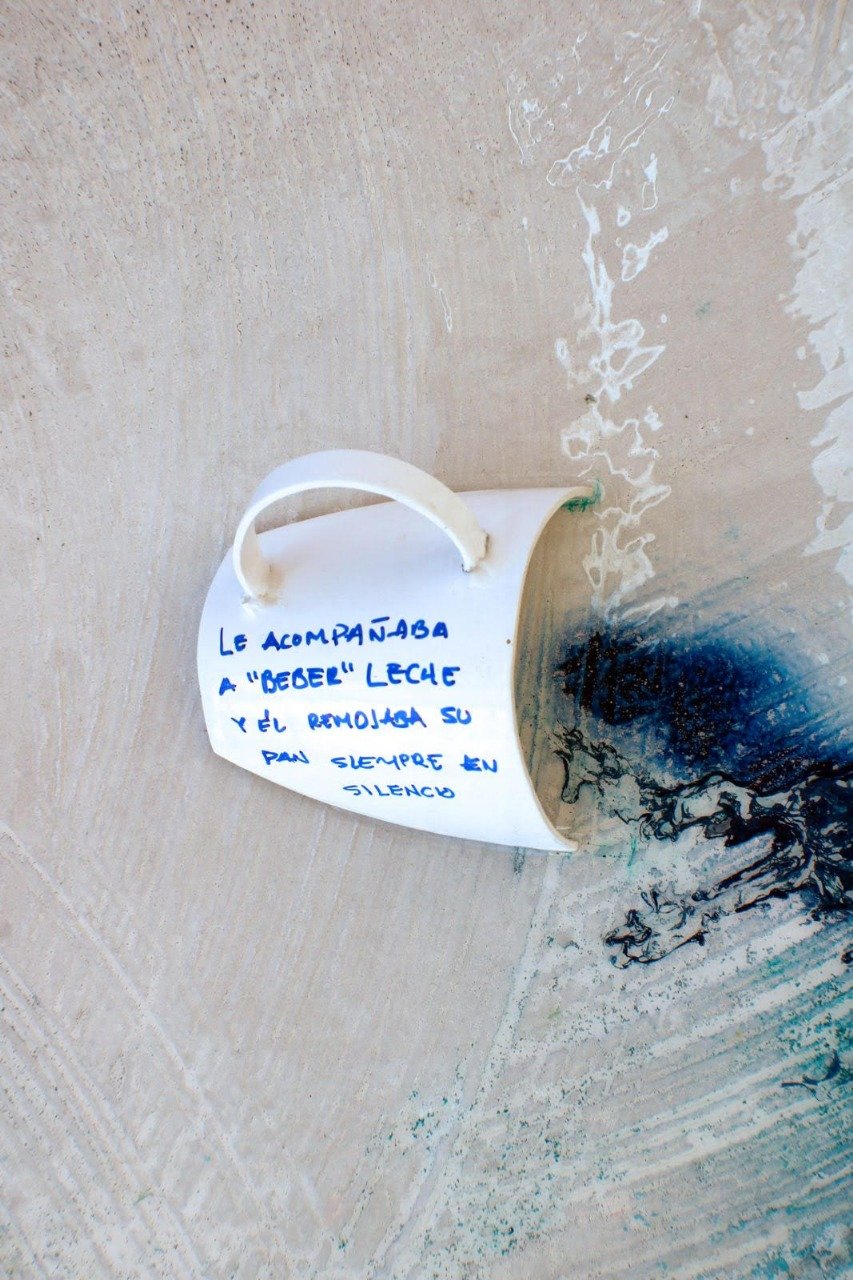 LE ACOMPAÑABA
A "BEBER" LECHE
Y ÉL REMOJABA SU
PAN SIEMPRE EN
SILENCIO